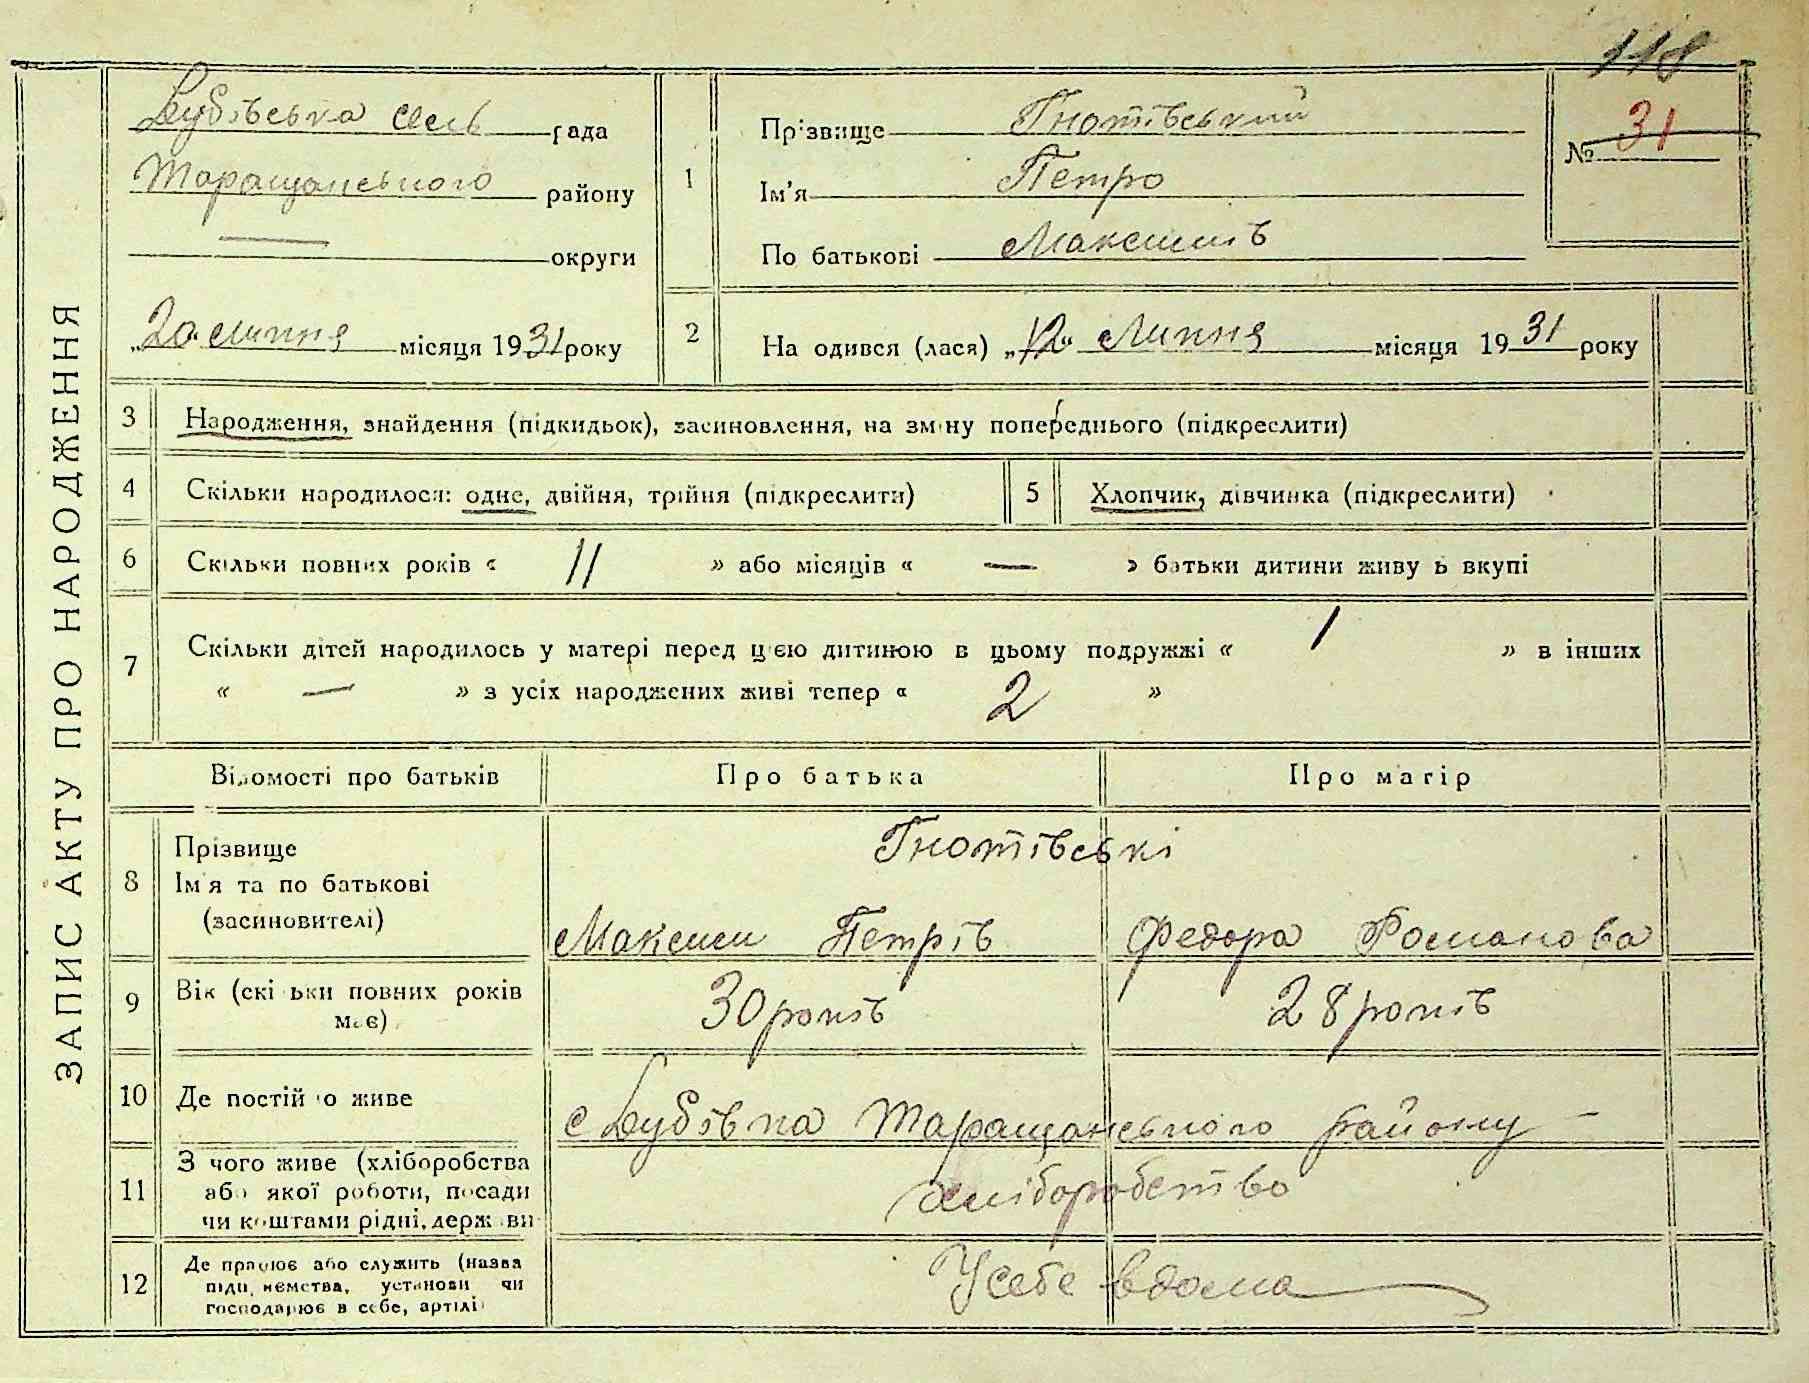 118
ЗАПИС АКТУ ПРО НАРОДЖЕННЯ
Дубівська сель рада
Таращанського району
— округи
„20“ липня місяця 1931 року
1 Прізвище Гнотівський
Ім'я Петро
По батькові Максимів
№ 31
2 На одився (лася) „12“ Липня місяця 1931 року
3 Народження, знайдення (підкидьок), засиновлення, на зміну попереднього (підкреслити)
4 Скільки народилося: одне, двійня, трійня (підкреслити) 5 Хлопчик, дівчинка (підкреслити)
6 Скільки повних років « 11 » або місяців « — » батьки дитини живу ь вкупі
7 Скільки дітей народилось у матері перед цією дитиною в цьому подружжі « 1 » в інших
« — » з усіх народжених живі тепер « 2 »
Відомості про батьків Про батька Про матір
8 Прізвище Гнотівські
Ім'я та по батькові
(засиновителі) Максим Петрів Федора Романова
9 Вік (скі ьки повних років 30 років 28 років
має)
10 Де постій о живе с Дубівка Таращанського району —
11 З чого живе (хліборобства
або якої роботи, посади хліборобство
чи коштами рідні, держ ви
12 Де працює або служить (назва
підп иємства, установи чи У себе вдома
господарює в себе, артілі